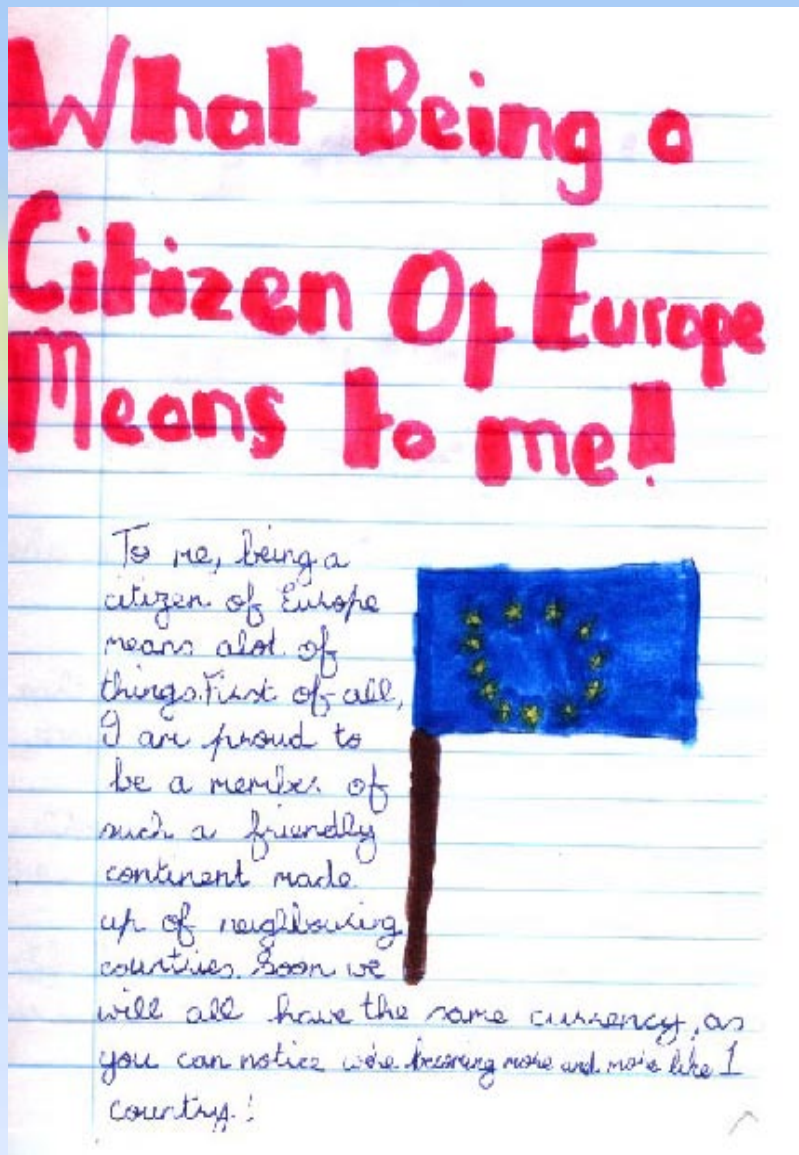 What Being a
Citizen Of Europe
Means to me!
To me, being a
citizen of Europe
means alot of
things. First of all,
I am proud to
be a member of
such a friendly
continent made
up of neighbouring
countries. Soon we
will all have the same currency, as
you can notice we're becoming more and more like 1
country!